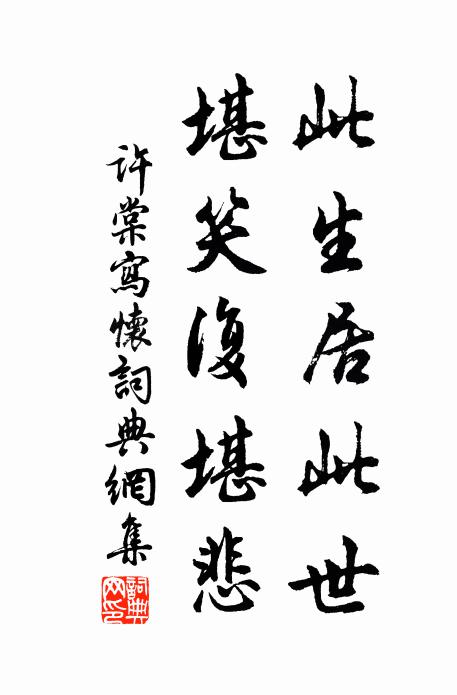 此生居此世
堪笑復堪悲
許棠寫懷詞典網集
詞典網印